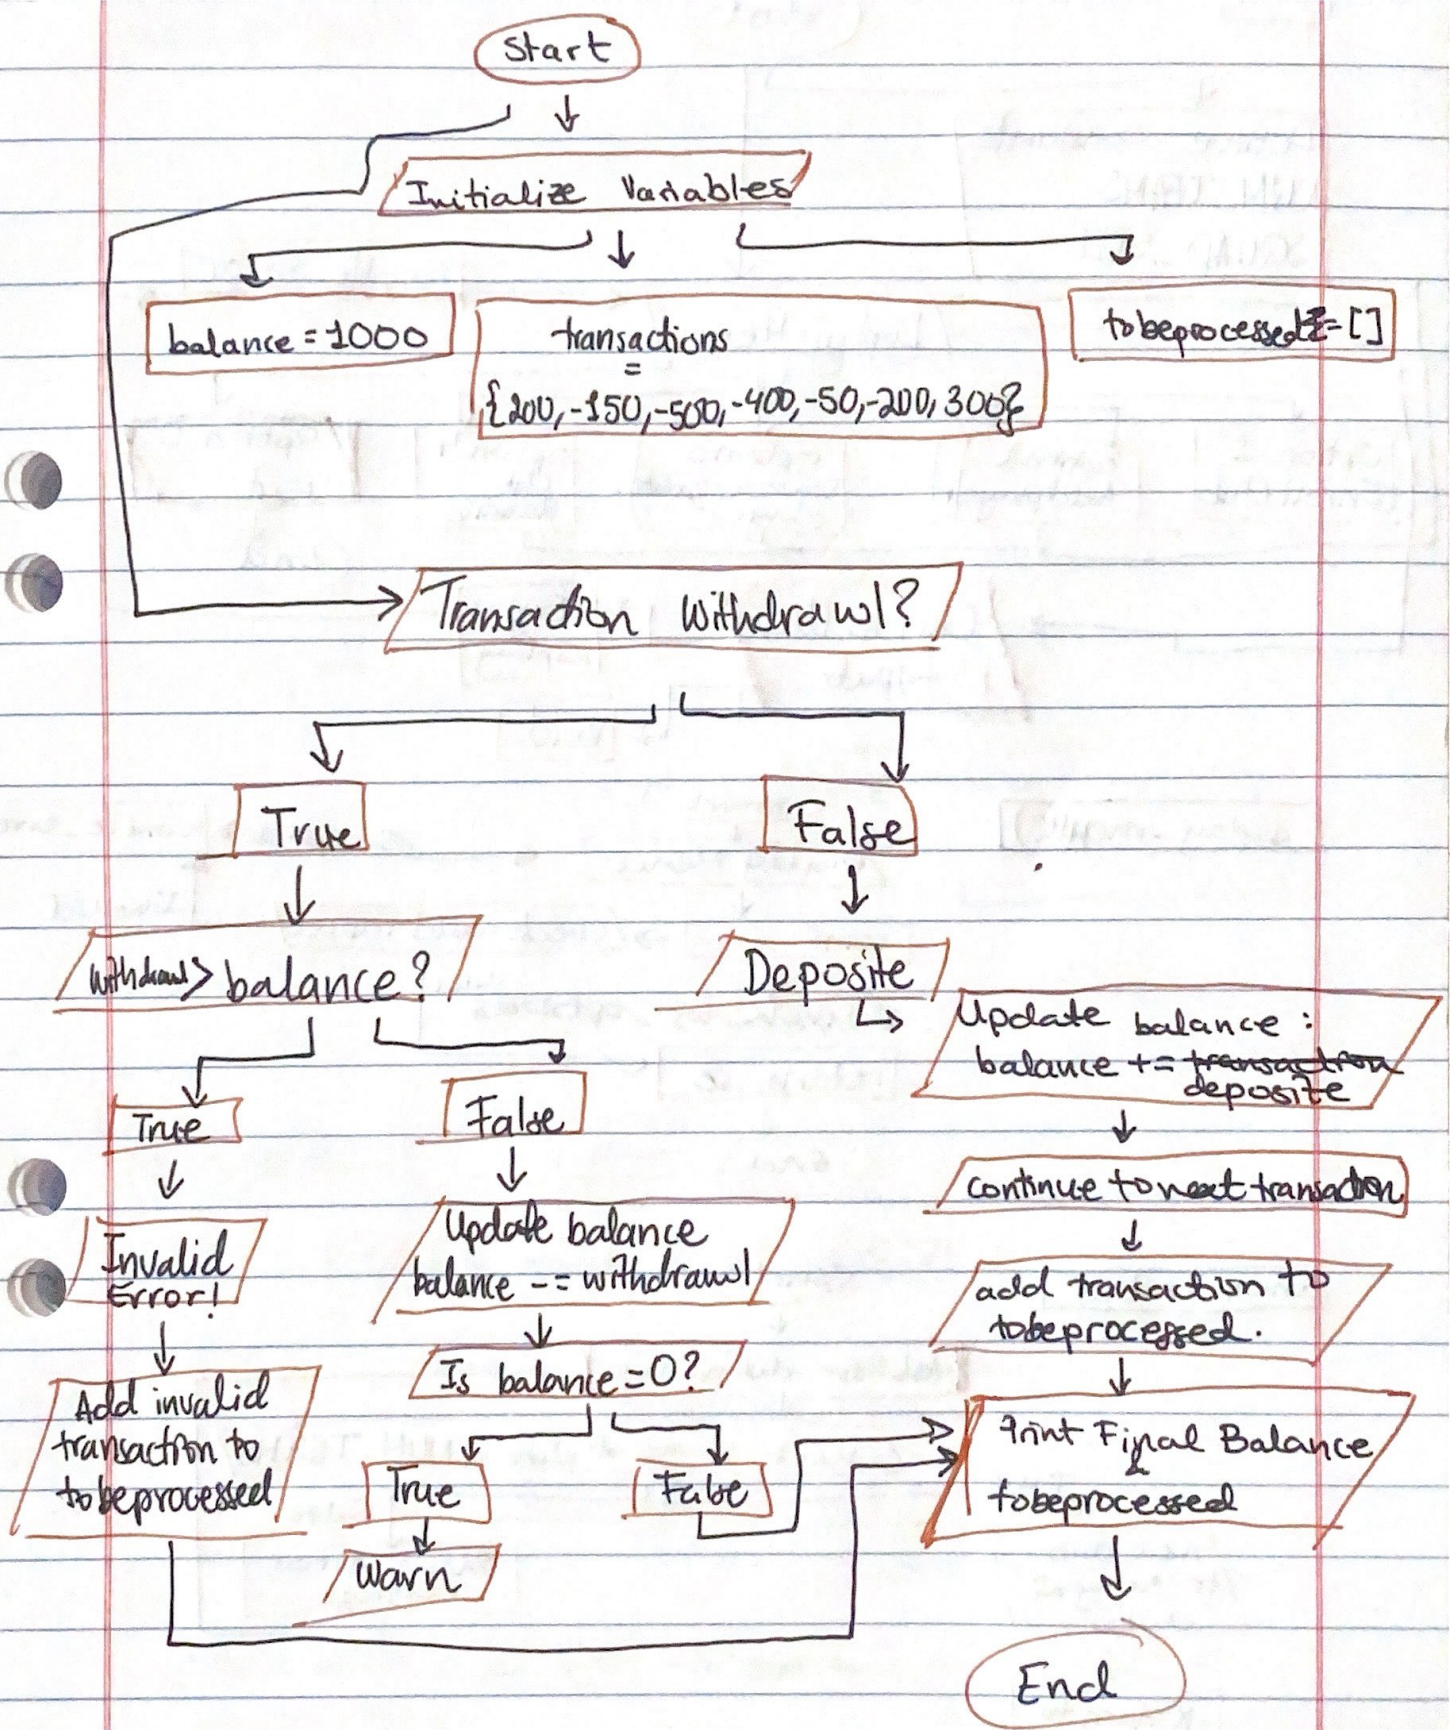 Start
Initialize Variables
balance = 1000
transactions
=
{200, -150, -500, -400, -50, -200, 300}
tobeprocessed = []
Transaction Withdrawl?
True
False
withdrawl > balance?
Deposite
Update balance :
balance += transaction
deposite
True
False
continue to next transaction
Invalid
Error!
Update balance
balance -= withdrawl
add transaction to
tobeprocessed.
Is balance = 0?
Add invalid
transaction to
tobeprocessed
True
False
Print Final Balance
&
tobeprocessed
Warn
End